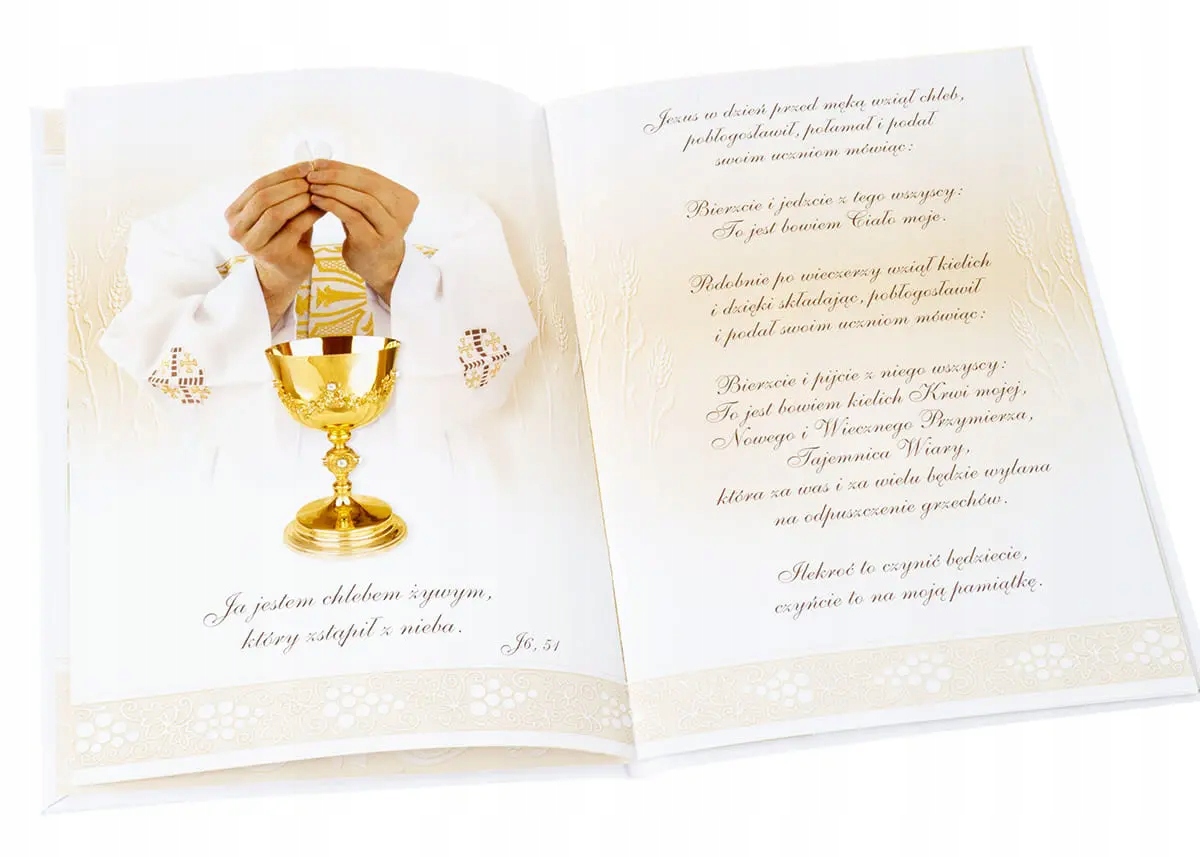 Ja jestem chlebem żywym,
który zstąpił z nieba.
J6, 51
Jezus w dzień przed męką wziął chleb,
pobłogosławił, połamał i podał
swoim uczniom mówiąc:
Bierzcie i jedzcie z tego wszyscy:
To jest bowiem Ciało moje.
Podobnie po wieczerzy wziął kielich
i dzięki składając, pobłogosławił
i podał swoim uczniom mówiąc:
Bierzcie i pijcie z niego wszyscy:
To jest bowiem kielich Krwi mojej,
Nowego i Wiecznego Przymierza,
Tajemnica Wiary,
która za was i za wielu będzie wylana
na odpuszczenie grzechów.
Ilekroć to czynić będziecie,
czyńcie to na moją pamiątkę.